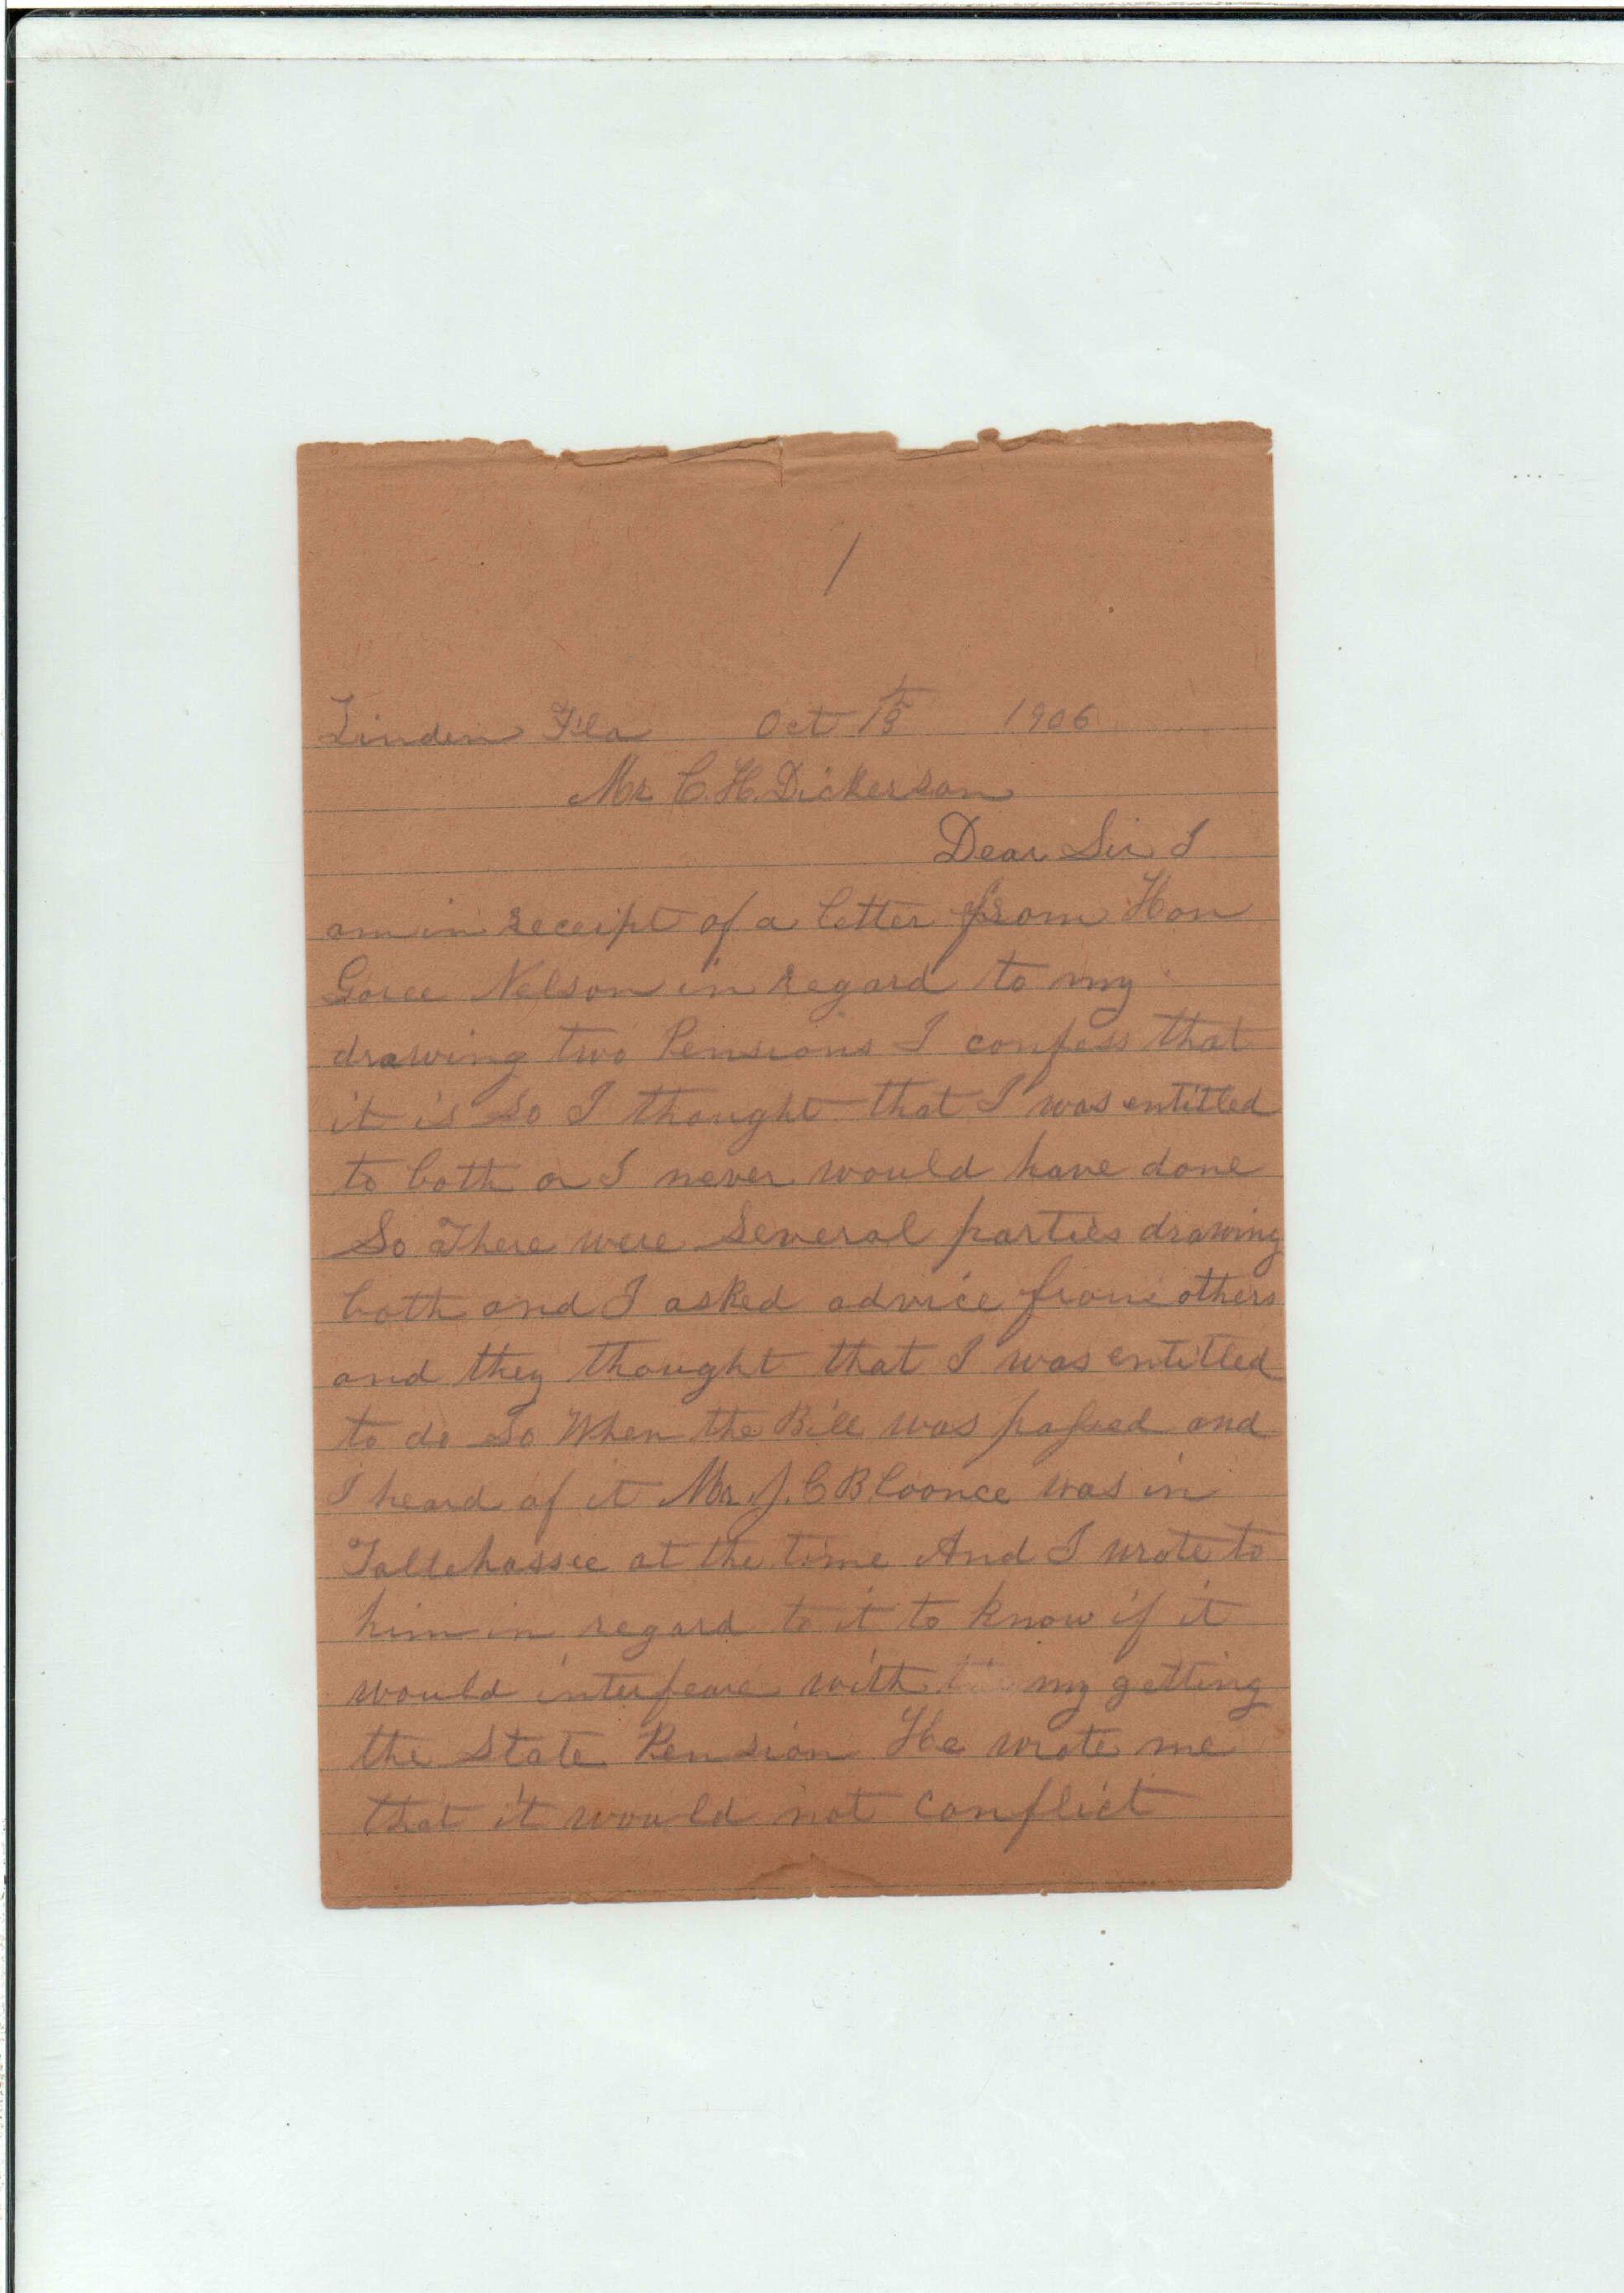 1
Linden Fla Oct 18th 1906
Mr C. H. Dickerson
Dear Sir I
am in receipt of a letter from Hon
Goree Nelson in regard to my
drawing two Pensions I confess that
it is So I thought that I was entitled
to both or I never would have done
So There were Several parties drawing
both and I asked advice from others
and they thought that I was entitled
to do So When the Bill was passed and
I heard of it Mr. J. C B Coonce was in
Tallehassee at the time And I wrote to
him in regard to it to know if it
would interfeare with my getting
the State Pension He wrote me
that it would not Conflict